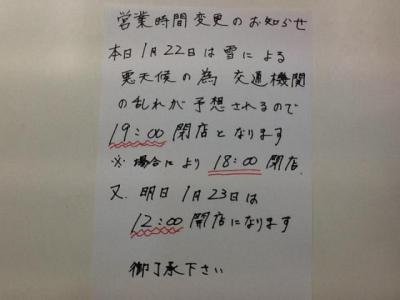 営業時間変更のお知らせ
本日1月22日は雪による
悪天候の為 交通機関
の乱れが予想されるので
19:00 閉店となります
※場合により 18:00 閉店.
又、明日1月23日は
12:00 開店になります
御了承下さい